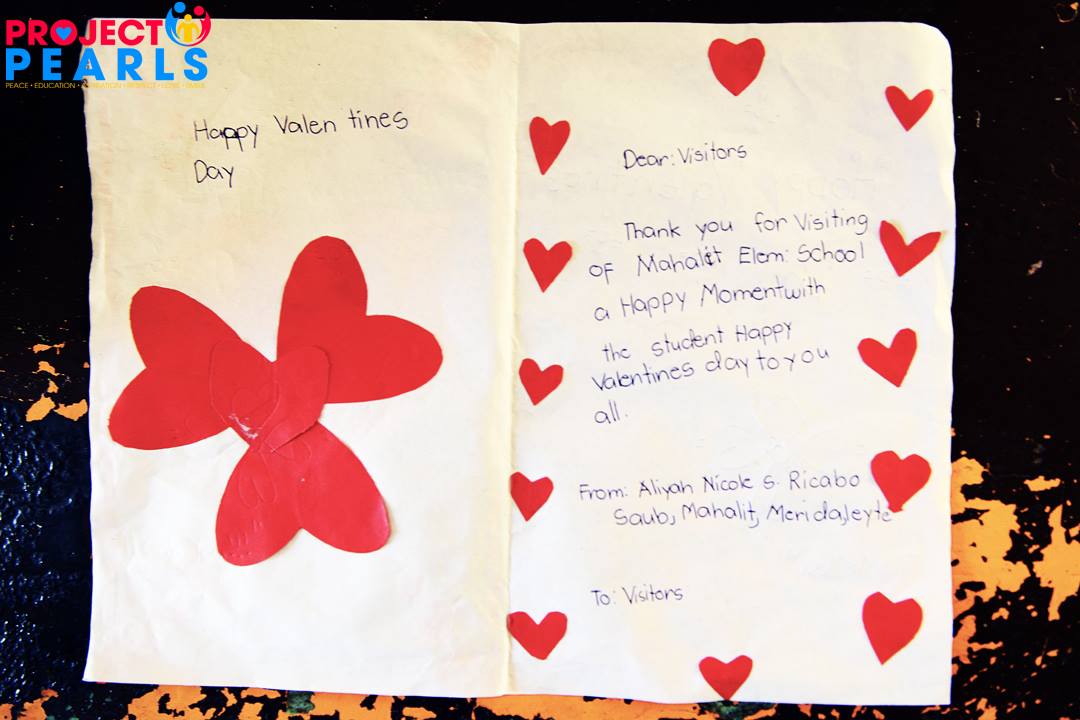 PROJECT
PEARLS
PEACE • EDUCATION •
Happy Valen tines
Day
Dear: Visitors
Thank you for Visiting
of Mahalit Elem: School
a Happy Moment with
the student Happy
Valentines day to you
all.
From: Aliyah Nicole S. Ricabo
Saub, Mahalit, Merida, leyte
To: Visitors